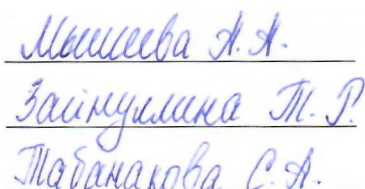 Мышева А.А.
Зайнуллина Т.Г.
Табанакова С.А.